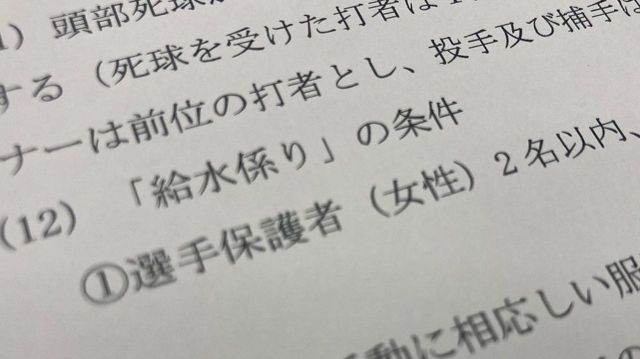 ) 頭部死球
する（死球を受けた打者は1
ナーは前位の打者とし、投手及び捕手は
(12) 「給水係り」の条件
①選手保護者（女性）2名以内、
動に相応しい服
の